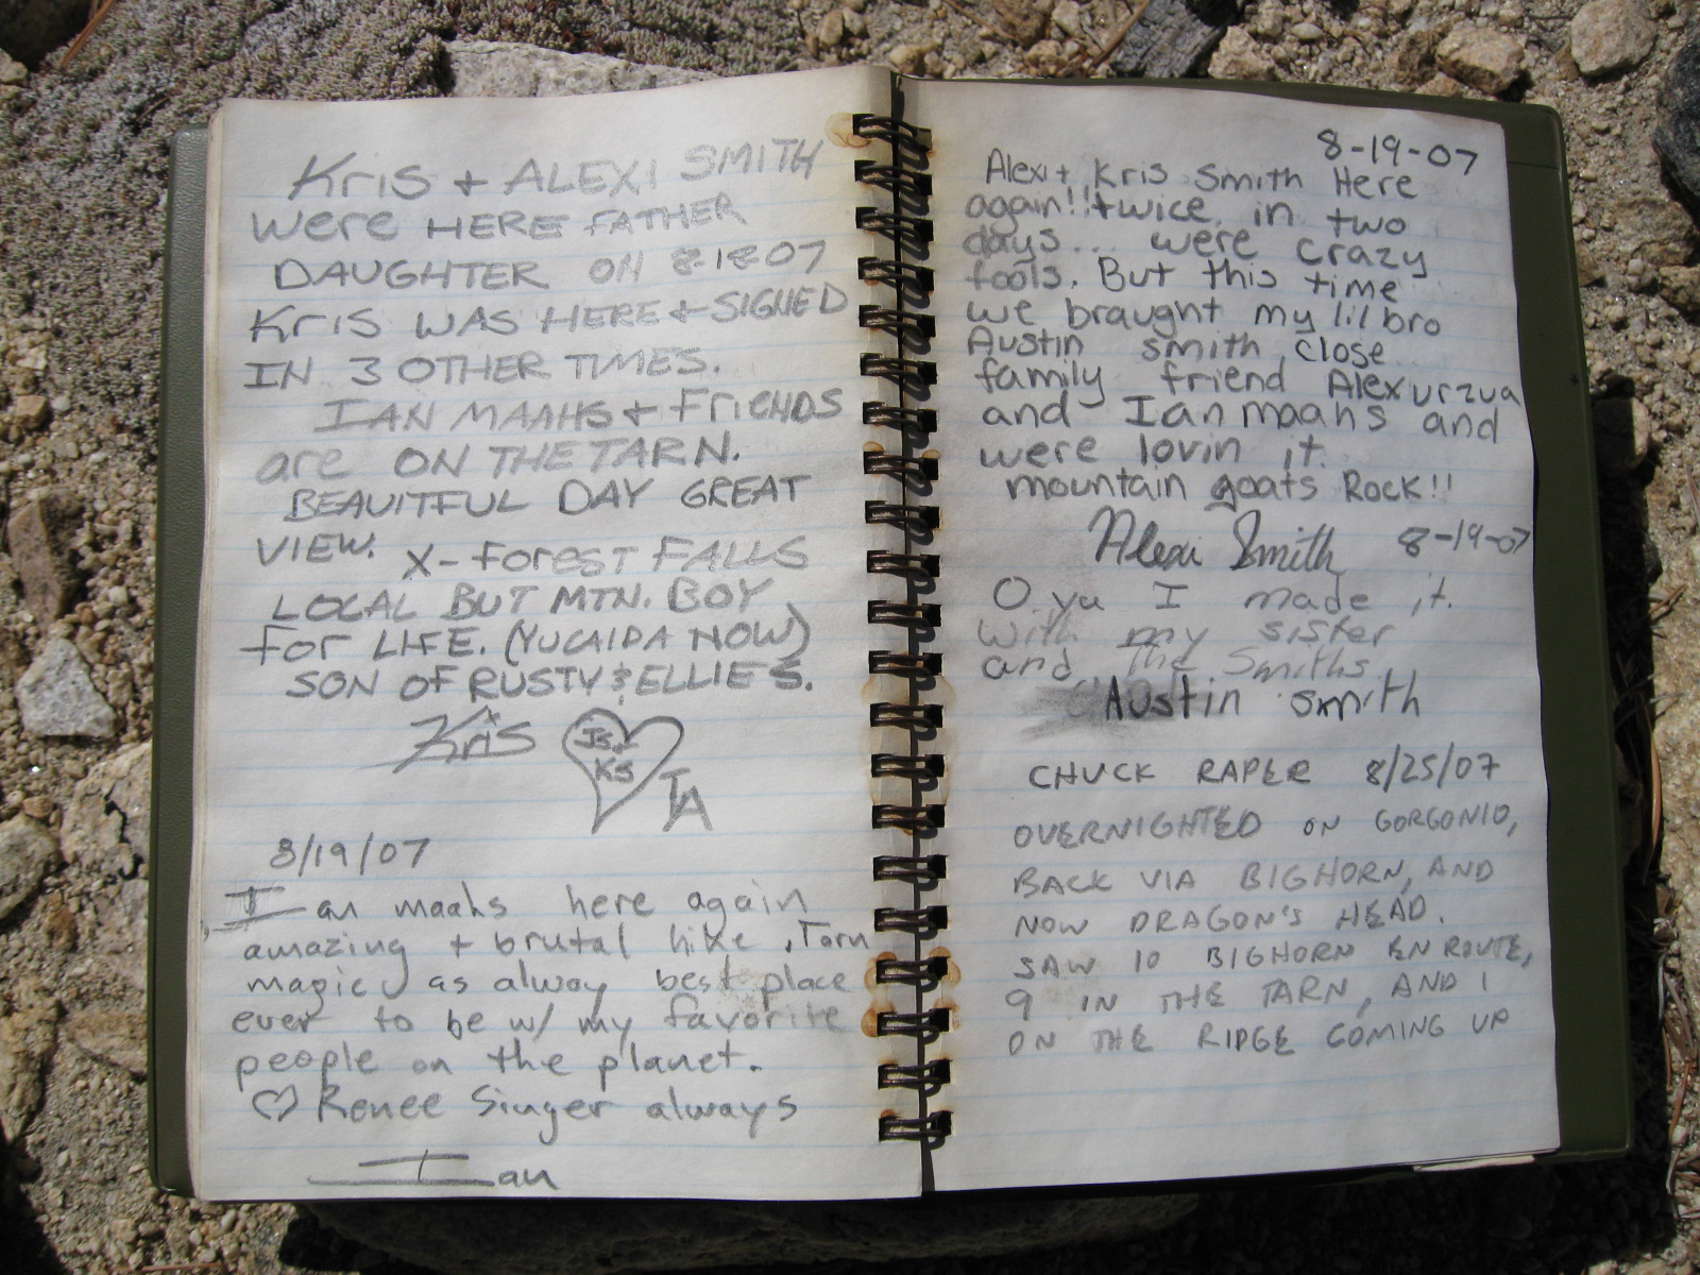 Kris + ALEXI SMITH
were HERE FATHER
DAUGHTER ON 8-18-07
Kris WAS HERE + SIGNED
IN 3 OTHER TIMES.
IAN MAAHS + FriENDS
are ON THE TARN.
BEAUITFUL DAY GREAT
VIEW. X-ForesT FALLS
LOCAL BUT MTN. BOY
for LIFE. (YUCAIDA NOW)
SON OF RUSTY & ELLIE S.
Kris
JS +
KS
TA
8/19/07
Ian maahs here again
amazing + brutal hike, Tarn
magic as alway best place
ever to be w/ my favorite
people on the planet.
♡ Renee Singer always
Ian
8-19-07
Alexi + Kris Smith Here
again!! twice in two
days... were crazy
fools. But this time
we braught my lil bro
Austin smith, close
family friend Alex urzua
and Ian maahs and
were lovin it.
mountain goats Rock!!
Alexi Smith 8-19-07
O yu I made it.
with my sister
and the Smiths
Austin smith
CHUCK RAPER 8/25/07
OVERNIGHTED ON GORGONIO,
BACK VIA BIGHORN, AND
NOW DRAGON'S HEAD.
SAW 10 BIGHORN EN ROUTE,
9 IN THE TARN, AND 1
ON THE RIDGE COMING UP